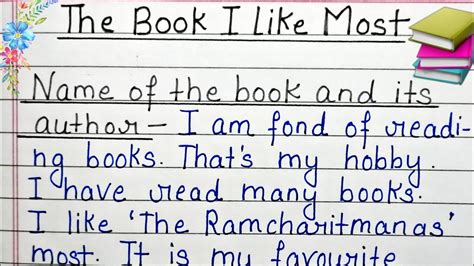 The Book I like Most
Name of the book and its
author - I am fond of readi-
ng books. That's my hobby.
I have read many books.
I like 'The Ramcharitmanas'
most. It is my favourite